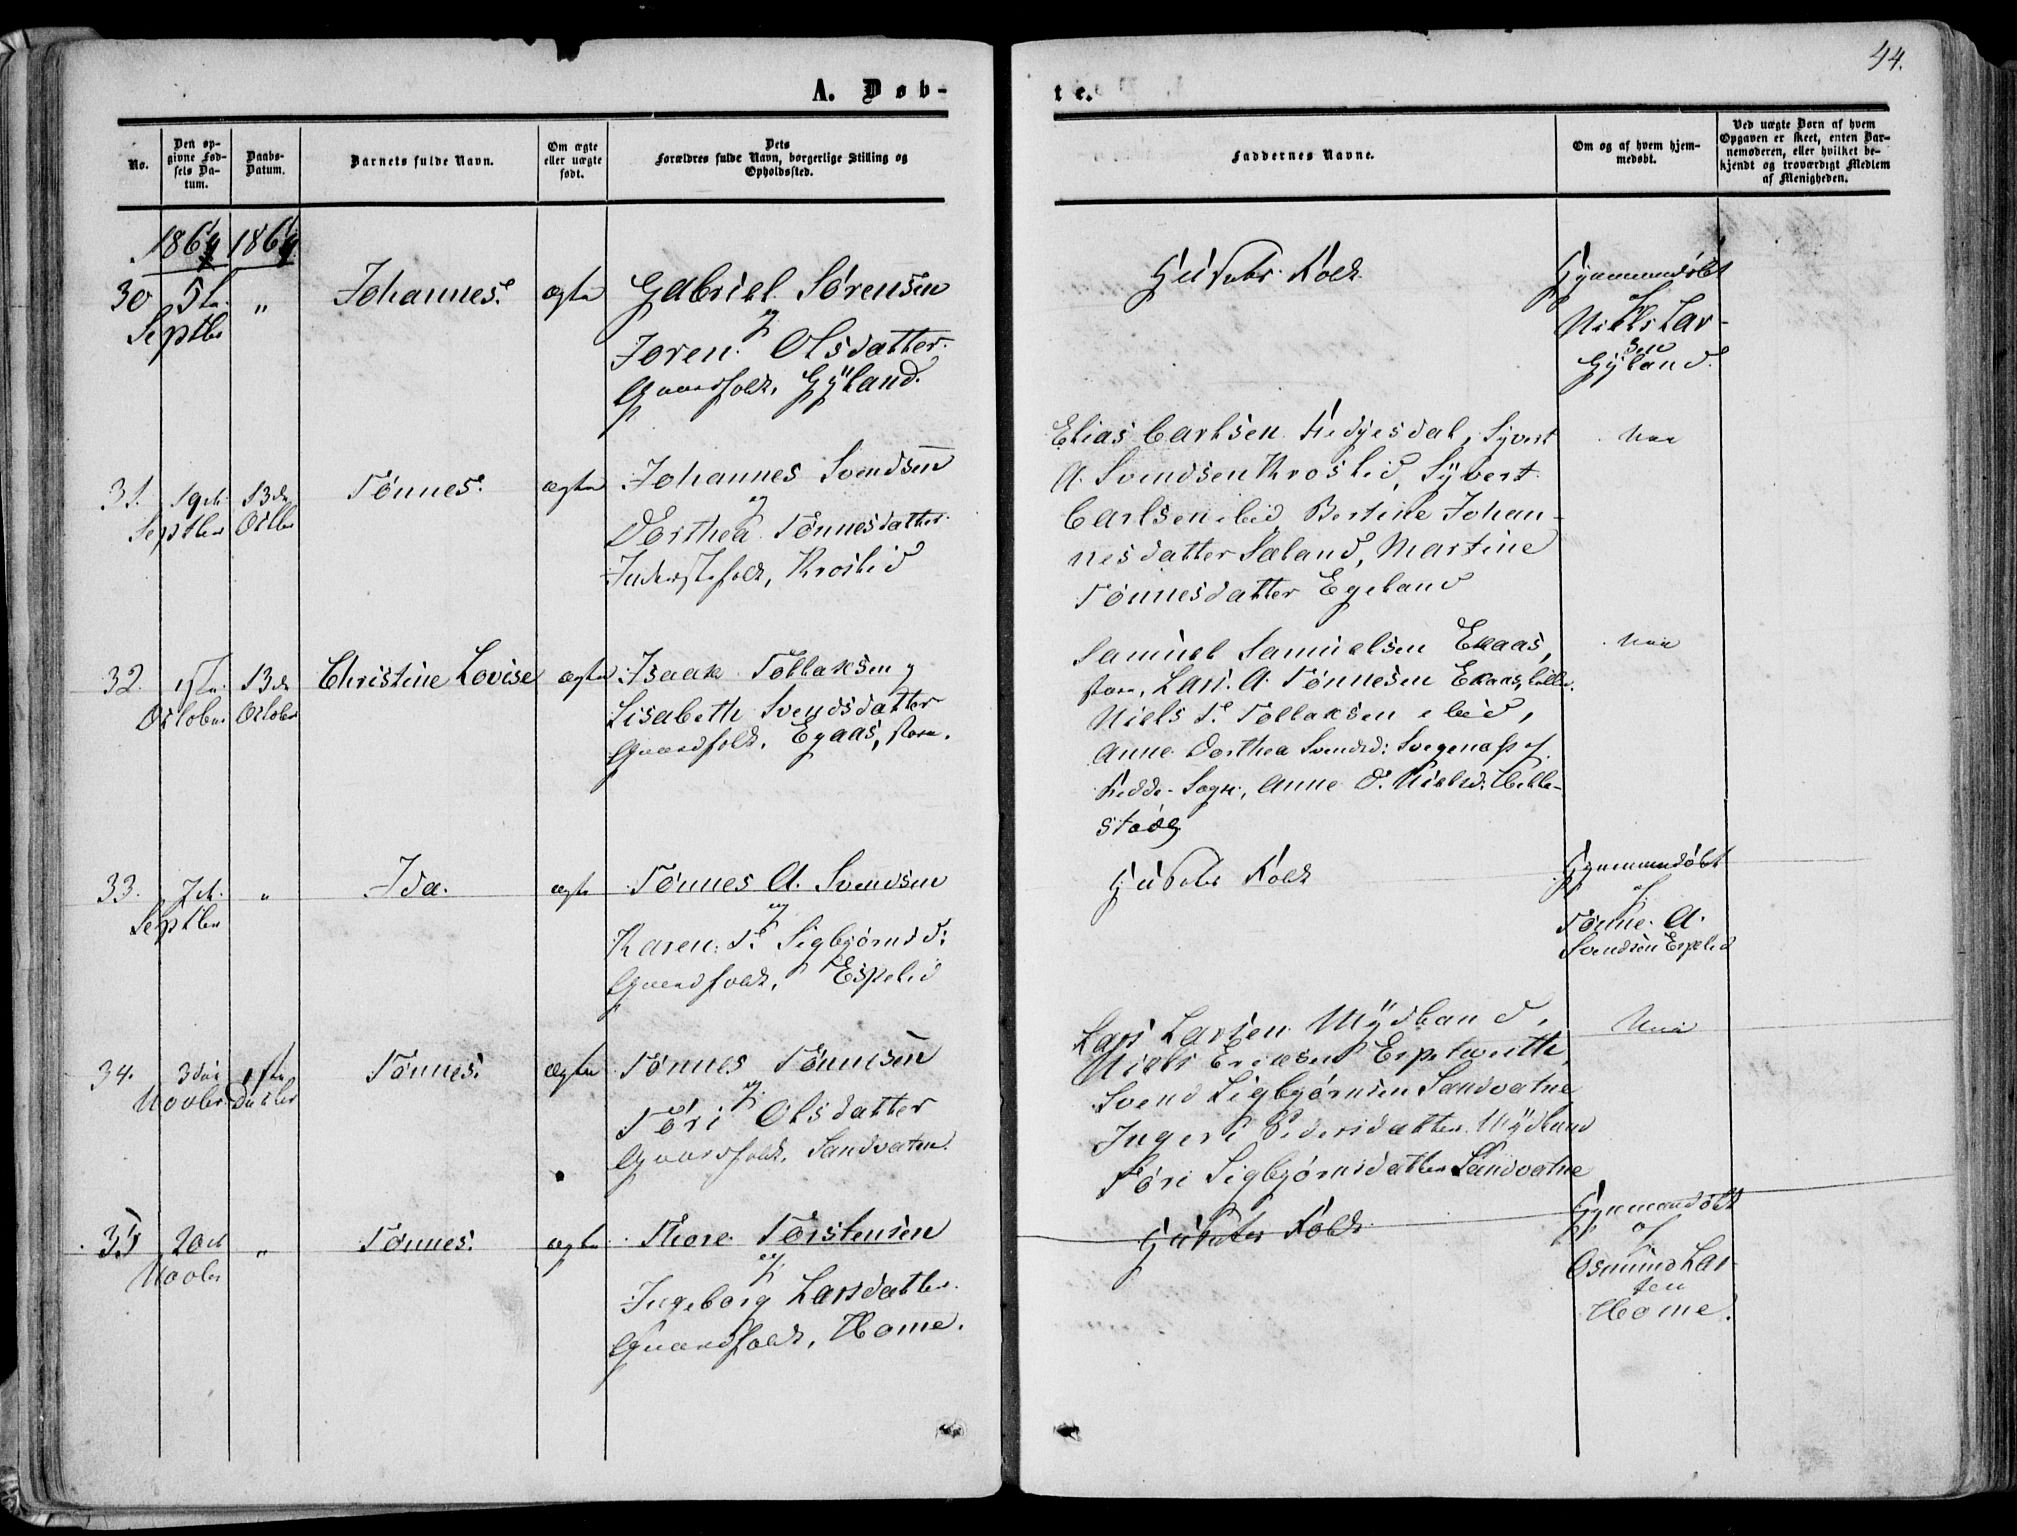 44.
A. Døb-
te.
No.
Den op-
givne Fød-
sels Da-
tum.
Daabs-
Datum.
Barnets fulde Navn.
Om ægte
eller uægte
født.
Dets
Forældres fulde Navn, borgerlige Stilling og
Opholdssted.
Faddernes Navne.
Om og af hvem hjem-
medøbt.
Ved uægte Børn af hvem
Opgaven er skeet, enten Bar-
nemoderen, eller hvilket be-
kjendt og troværdigt Medlem
af Menigheden.
30
5te
Septbr
"
Johannes.
ægte
Gabriel Sørensen
og
Joren Olsdatter
Gaardfolk, Gÿland.
Husets Folk
Hjemmedøbt
af
Niels Lar-
sen
Gÿland.
31.
19de
Septber
13de
Octbr
Tønnes.
ægte
Johannes Svendsen
og
Dorthea Tønnesdatter
Inderstfolk, Kroslid
Elias Carlsen Fedjesdal, Sÿvert
A. Svendsen Kroslid, Sÿvert
Carlsen ibid, Bertine Johan-
nesdatter Sæland, Martine
Tønnesdatter Egeland
Nei
32.
1ste
October
13de
October
Christine Lovise
ægte
Isaak Tollaksen og
Lisabeth Svendsdatter
Gaardfolk, Egaas, store.
Samuel Samuelsen Ekaas,
store, Lars A. Tønnesen Ekaas, lille.
Niels T. Tollaksen ibid,
Anne Dorthea Svendsd: af
Fedde Sogn, Anne D. Nielsd:
Nei
33.
7de
Septber
"
Ida.
ægte
Tønnes A. Svendsen
og
Karen T. Sigbjørnsd:
Gaardfolk, Espelid
Husets Folk
Hjemmedøbt
af
Tønne A.
Svendsen Espelid
34.
3die
Novber
1ste
Decbr
Tønnes.
ægte
Tønnes Tønnesen
og
Tøri Olsdatter
Gaardfolk, Sandvatne.
Lars Larsen Mÿdland,
Niels Eriksen
Svend Sigbjørnsen Sandvatne
Ingeri Pedersdatter Mÿdland
Tøri Sigbjørnsdatter Sandvatne
Nei
35
20de
Novber
"
Tønnes.
ægte
Thore Torstensen
og
Ingeborg Larsdatter
Gaardfolk, Home.
Husets Folk
Hjemmedøbt
af
Osmund Lar-
sen
Home.